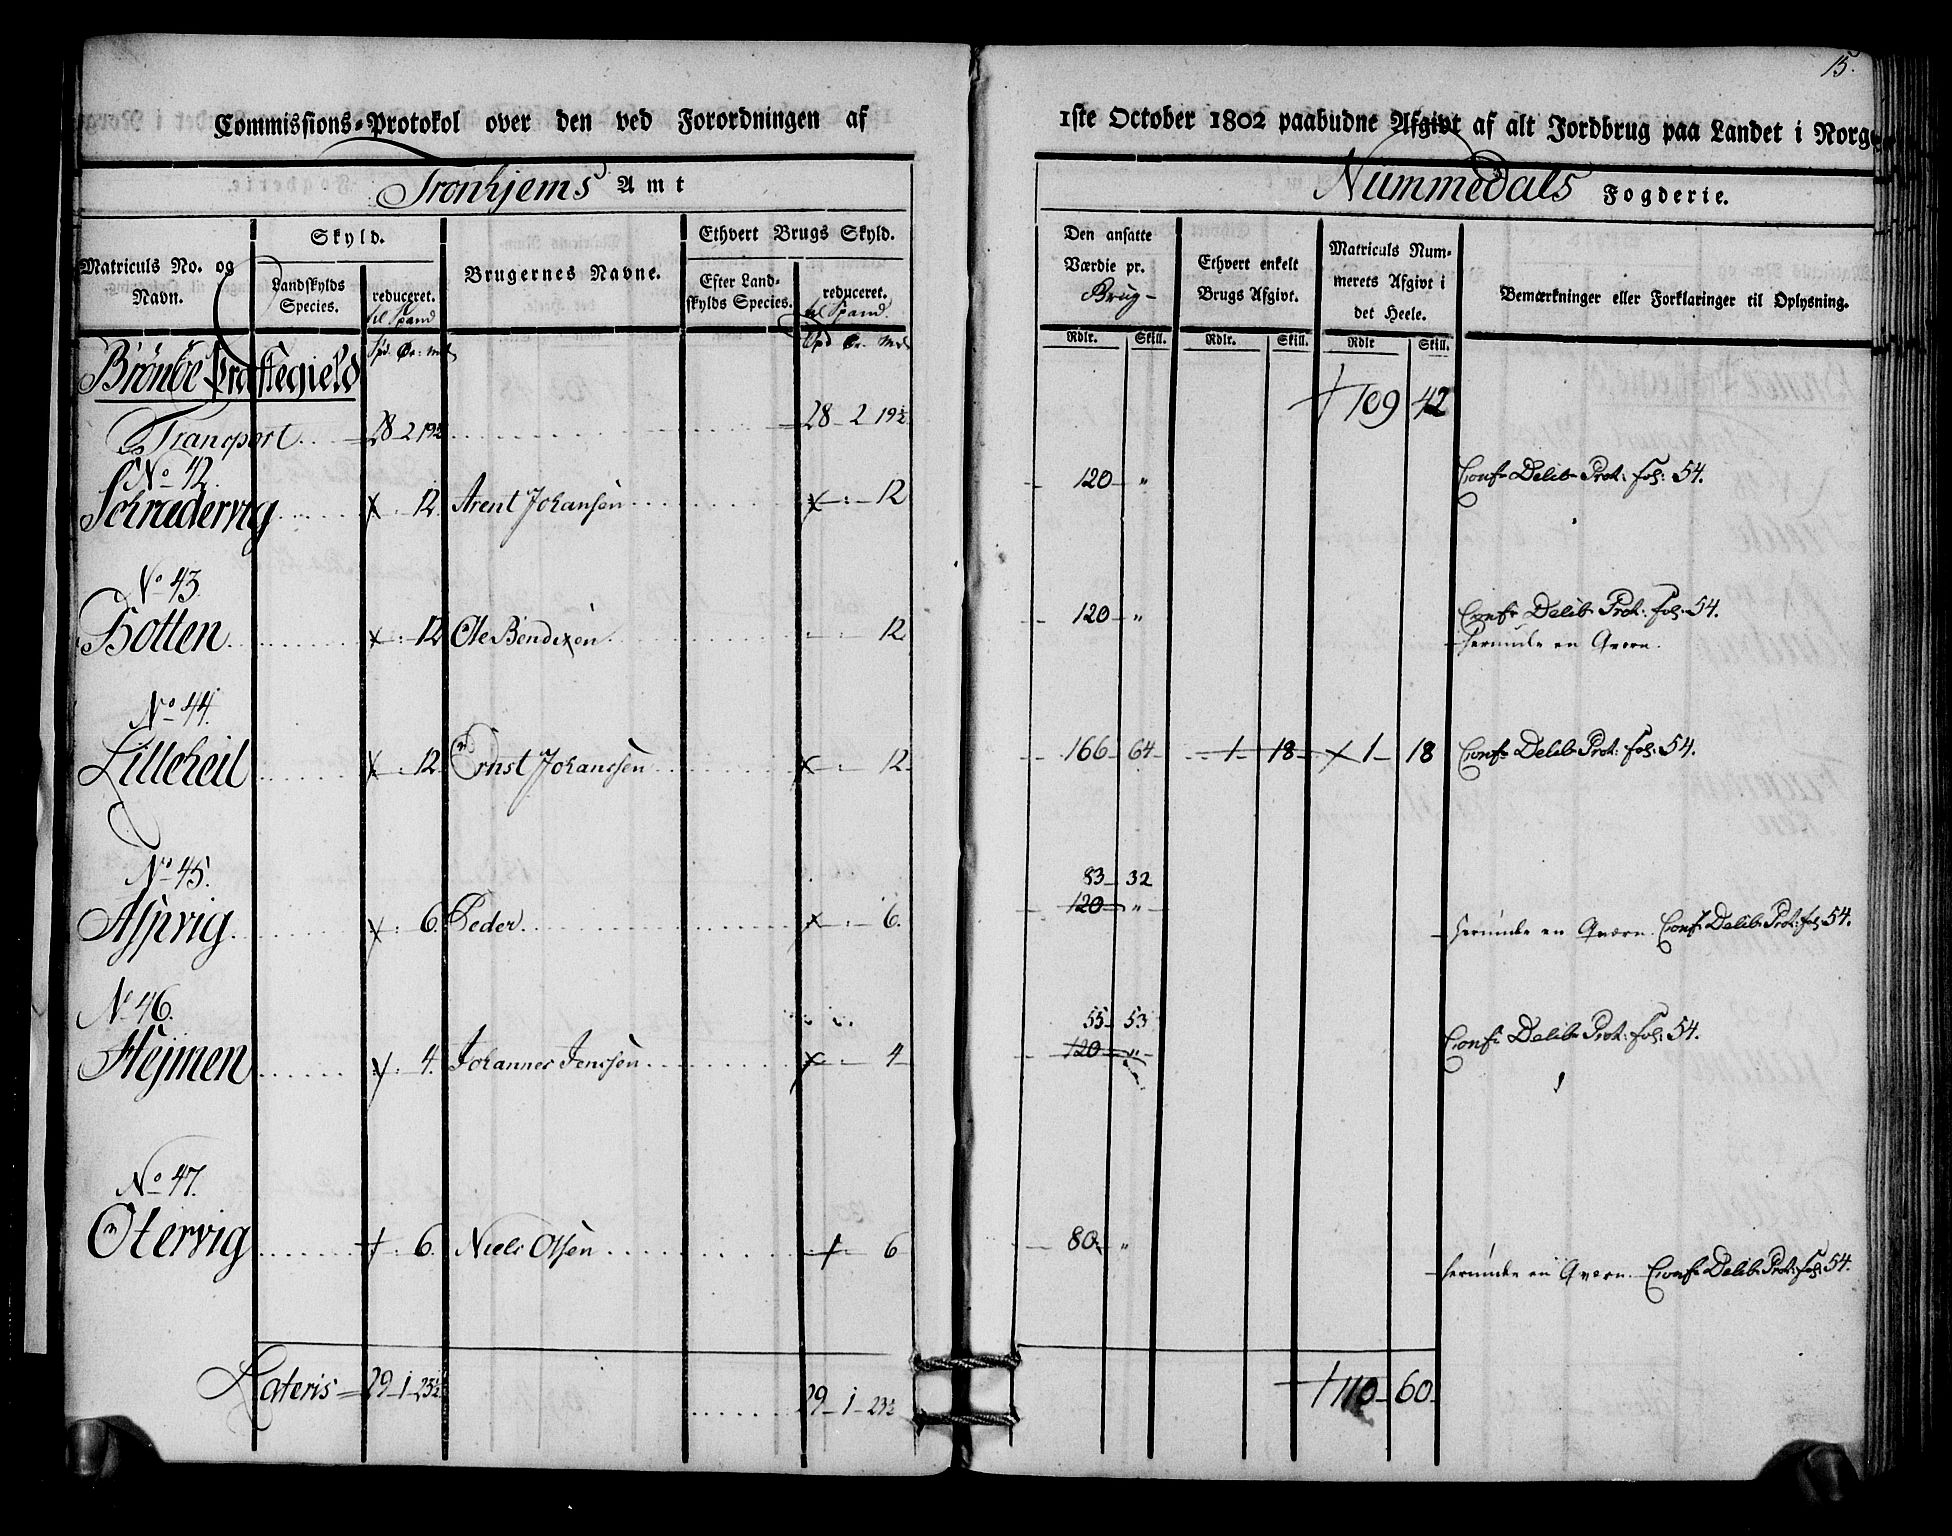 15.
Commissions-Protokol over den ved Forordningen af 1ste October 1802 paabudne Afgivt af alt Jordbrug paa Landet i Norge
Tronhjems Amt
Nummedals Fogderie.
Matriculs No. og Navn.
Skyld.
Landskylds Species.
reduceret.
til Spand
Spd. Ør: mk
Brugernes Navne.
Ethvert Brugs Skyld.
Efter Landskylds Species.
reduceret.
til Spand
Spd Ør. Mk
Den ansatte Værdie pr. Brug-
Rdlr. Skill.
Ethvert enkelt Brugs Afgivt.
Rdlr. Skill.
Matriculs Nummerets Afgivt i det Heele.
Rdlr Skill.
Bemærkninger eller Forklaringer til Oplysning.
Brönöe Præstegield
Transport 28-2 19½ 28-2 19½ 109 42
No 42.
Schrudervig : 12. Arent Johansen : 12 120 " Conf Delib Prot: fol: 54.
No 43.
Hotten : 12 Ole Bendixen 12 120 " Conf Delib Prot: fol: 54.
herunder en Qværn.
No 44.
Lilleheil : 12. Ernst Johanssen 12 166 64 1 18 1 18 Conf Delib Prot: fol: 54.
No 45.
83 32
Aspvig : 6. Peder 6. 120 " herunder en Qværn. Conf Delib Prot: fol 54.
No 46.
55 53
Hejmen : 4. Johannes Jenssen 4 120 " Conf Delib Prot: fol: 54.
No 47.
Otervig : 6. Niels Olsen 6 80 " herunder en Qværn. Conf Delib Prot: fol: 54.
Lateris 29-1-23½ 29-1-23½ 110 60